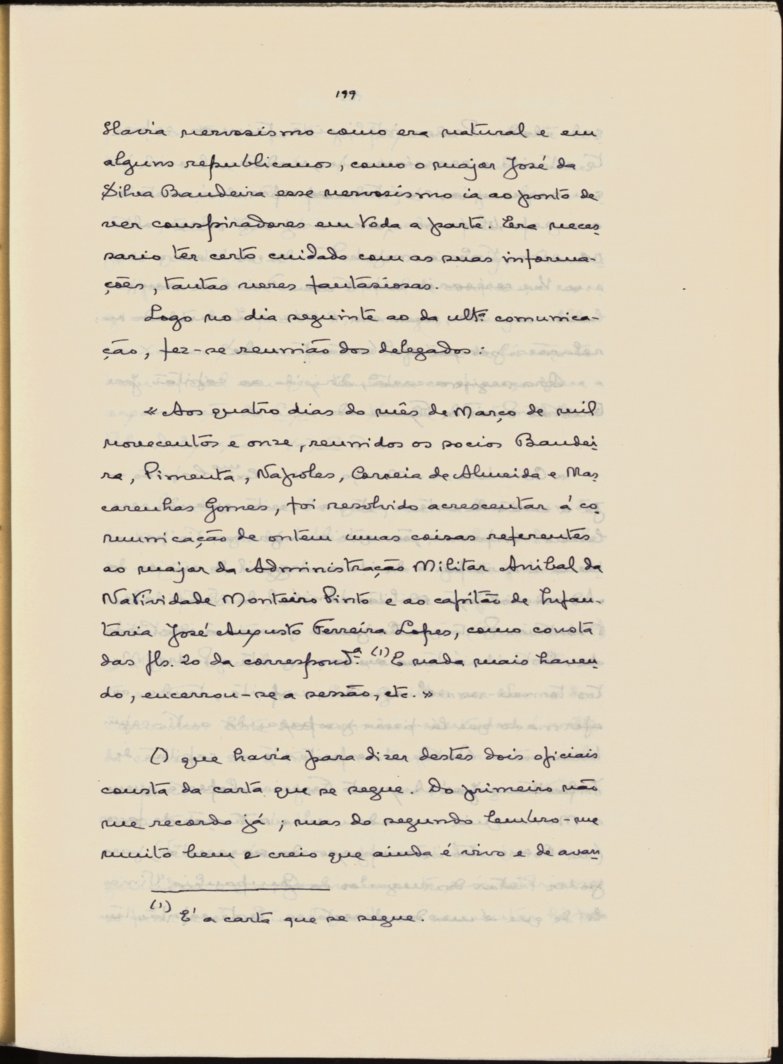 199
Havia nervosismo como era natural e em
alguns republicanos, como o major José da
Silva Bandeira esse nervosismo ia ao ponto de
ver conspiradores em toda a parte. Era neces-
sario ter certo cuidado com as suas informa-
ções, tantas vezes fantasiosas.
Logo no dia seguinte ao da ultª comunica-
ção, fez-se reunião dos delegados:
« Aos quatro dias do mês de Março de mil
novecentos e onze, reunidos os socios Bandei-
ra, Pimenta, Napoles, Correia de Almeida e Mas-
carenhas Gomes, foi resolvido acrescentar á co-
municação de ontem umas coisas referentes
ao major da Administração Militar Anibal da
Natividade Monteiro Pinto e ao capitão de Infan-
taria José Augusto Ferreira Lopes, como consta
das fls. 20 da correspondª. (1) E nada mais haven-
do, encerrou-se a sessão, etc. »
O que havia para dizer destes dois oficiais
consta da carta que se segue. Do primeiro não
me recordo já; mas do segundo lembro-me
muito bem e creio que ainda é vivo e de avan-
(1) E' a carta que se segue.